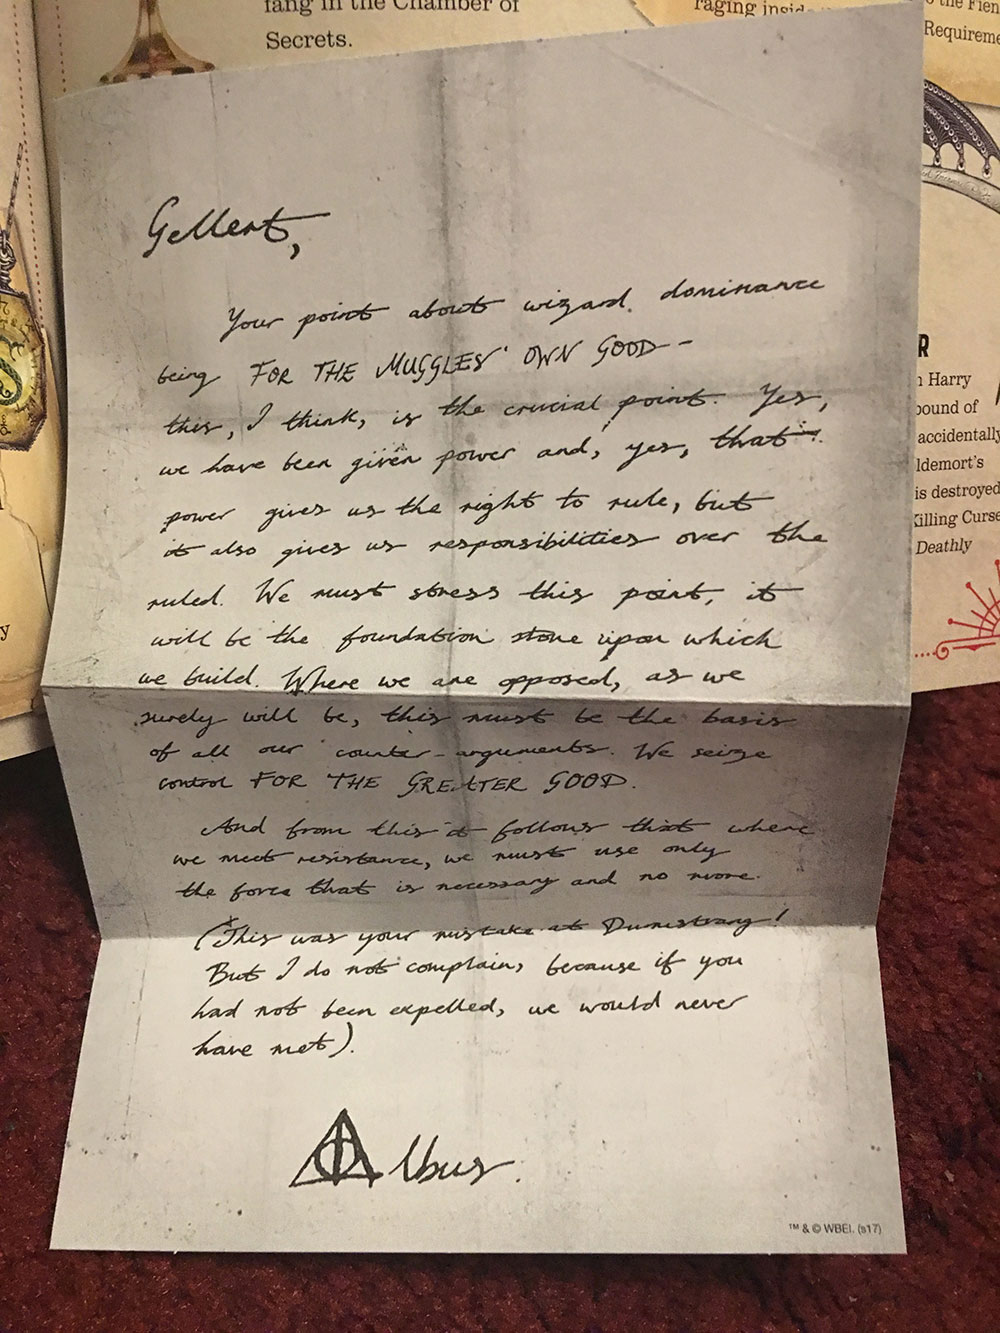 fang in the Chamber of
Secrets.
raging
Requireme
R
Harry
accidentally
ldemort's
is destroyed
Killing Curse
Deathly
y
Gellert,
Your point about wizard dominance
being FOR THE MUGGLES' OWN GOOD -
this, I think, is the crucial point. Yes,
we have been given power and, yes, that
power gives us the right to rule, but
it also gives us responsibilities over the
ruled. We must stress this point, it
will be the foundation stone upon which
we build. Where we are opposed, as we
surely will be, this must be the basis
of all our counter-arguments. We seize
control FOR THE GREATER GOOD.
And from this it follows that where
we meet resistance, we must use only
the force that is necessary and no more.
(This was your mistake at Durmstrang!
But I do not complain, because if you
had not been expelled, we would never
have met).
Albus.
™ & © WBEI. (s17)